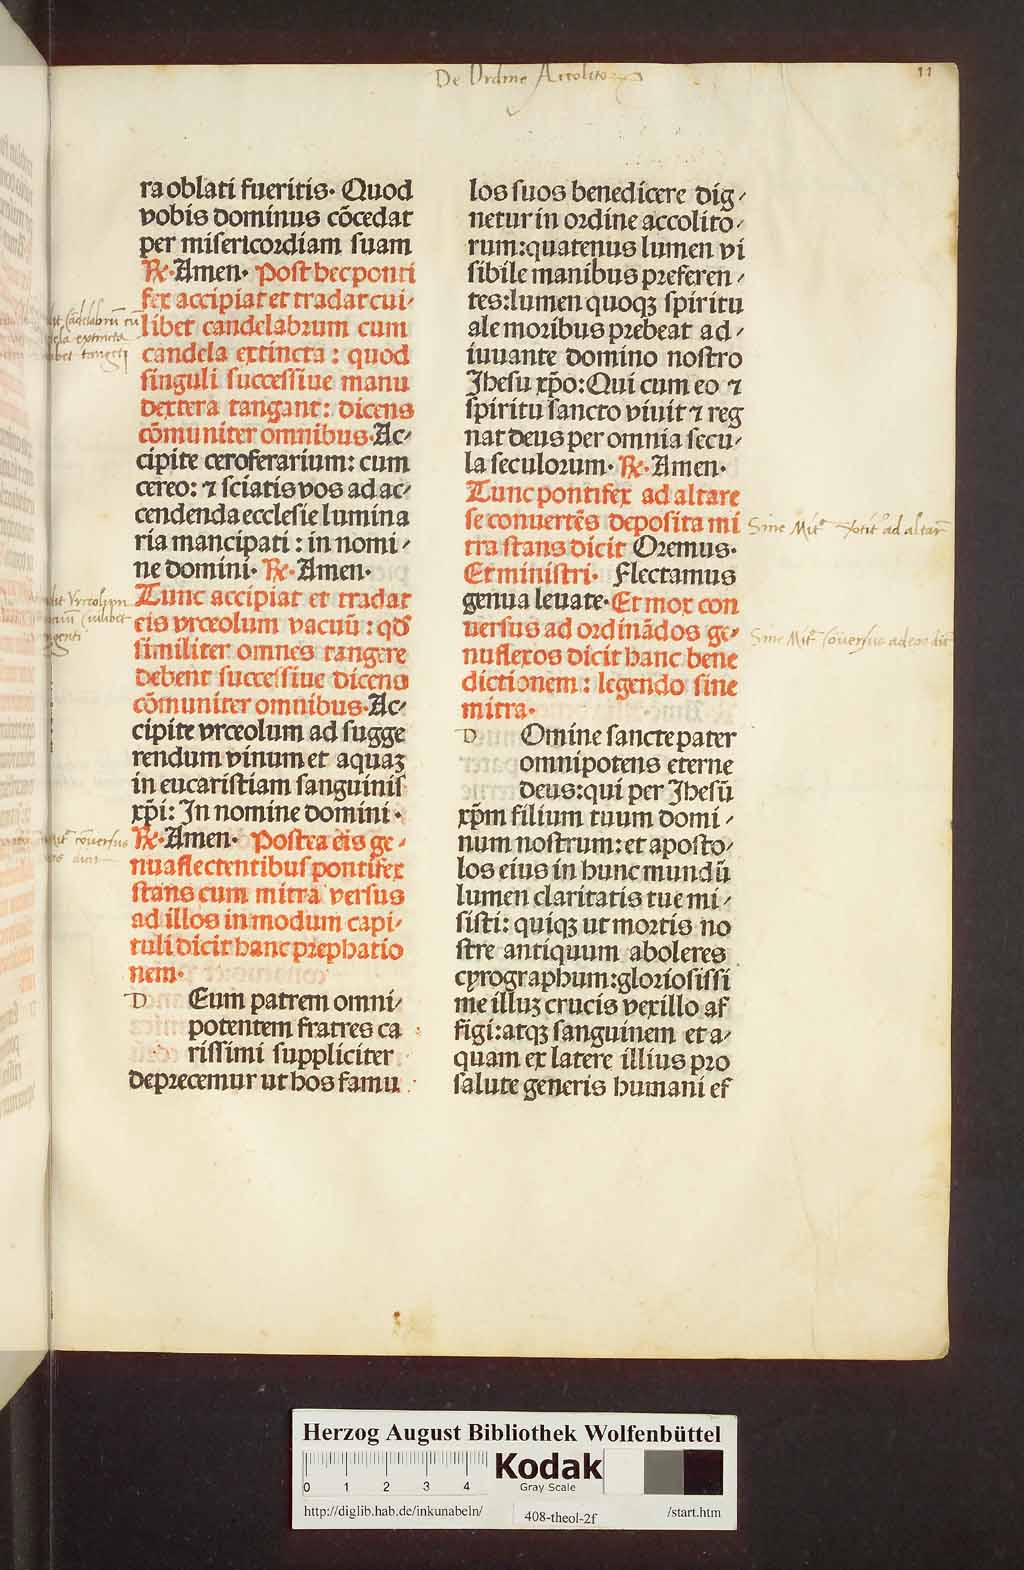 De Ordine Accolito
11
ra oblati fueritis· Quod
vobis dominus cōcedat
per misericordiam suam
℟·Amen· Post hec ponti
fex accipiat et tradat cui⸗
libet candelabrum cum
candela extincta : quod
singuli successiue manu
dextera tangant: dicens
cōmuniter omnibus·Ac⸗
cipite ceroferarium: cum
cereo: ⁊ sciatis vos ad ac⸗
cendenda ecclesie lumina
ria mancipati : in nomi⸗
ne domini· ℟·Amen·
Tunc accipiat et tradat
eis vrceolum vacuū : qđ
similiter omnes tangere
debent successiue dicens
cōmuniter omnibus·Ac⸗
cipite vrceolum ad sugge
rendum vinum et aquaꝫ
in eucaristiam sanguinis
xp̄i: In nomine domini·
℟·Amen· Postea eis ge⸗
nuaflectentibus pontifex
stans cum mitra versus
ad illos in modum capi⸗
tuli dicit hanc prephatio
nem·
D Eum patrem omni⸗
potentem fratres ca
rissimi suppliciter
deprecemur ut hos famu
los suos benedicere dig⸗
netur in ordine accolito⸗
rum:quatenus lumen vi
sibile manibus preferen⸗
tes:lumen quoqꝫ spiritu
ale moribus prebeat ad⸗
iuuante domino nostro
Jhesu xp̄o:Qui cum eo ⁊
spiritu sancto viuit ⁊ reg
nat deus per omnia secu⸗
la seculorum· ℟·Amen·
Tunc pontifex ad altare
se conuertēs deposita mi
tra stans dicit Oremus·
Et ministri· Flectamus
genua leuate·Et mox con
uersus ad ordinādos ge⸗
nuflexos dicit hanc bene
dictionem : legendo sine
mitra·
D Omine sancte pater
omnipotens eterne
deus:qui per Jhesū
xp̄m filium tuum domi⸗
num nostrum:et aposto⸗
los eius in hunc mundū
lumen claritatis tue mi⸗
sisti: quiqꝫ ut mortis no
stre antiquum aboleres
cyrographum:gloriosissi
me illuꝫ crucis vexillo af
figi:atqꝫ sanguinem et a⸗
quam ex latere illius pro
salute generis humani ef
candelabrū cū
extincta
tangēti
Vrceolum
cuilibet
cōuersus
Sine Mit ad altare
Sine Mit Cōuersus ad eos dicit
Herzog August Bibliothek Wolfenbüttel
0 1 2 3 4
Kodak
Gray Scale
http://diglib.hab.de/inkunabeln/
408-theol-2f
/start.htm